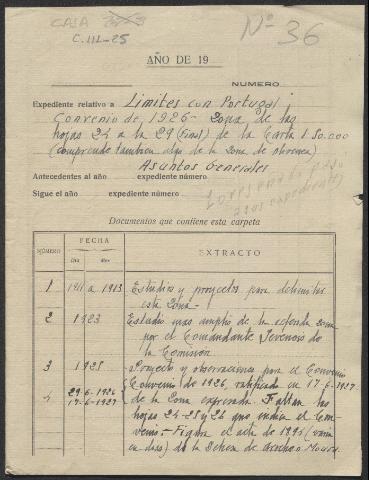 CAJA
C.III-25
Nº 36
AÑO DE 19
NUMERO
Expediente relativo a Limites con Portugal
Convenio de 1926 - Zona de las
hojas 24 a la 29 (final) de la Carta 1:50.000
(comprende tambien algo de la zona de
Asuntos Generales
Antecedentes al año expediente número
Sigue el año expediente número
Documentos que contiene esta carpeta
NÚMERO FECHA EXTRACTO
Día Mes
1 a 1913 Estudios y proyectos para delimitar
esta zona.-
2 1923 Estudio mas amplio de la referida zona
por el Comandante
la Comision
3 1925 Proyecto y observaciones para el Convenio
4 29-6-1926 Convenio de 1926, ratificado en 17-6-1927
17-6-1927 de la Zona expresada. Faltan las
hojas 24-25 y 26 que indica el Con-
venio.- Figura el acta de
de la Dehesa de